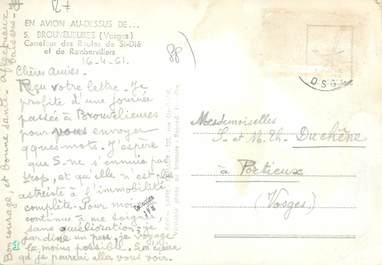 27
EN AVION AU-DESSUS DE...
5. BROUVELIEURES (Vosges)
Carrefour des Routes de St-Dié
et de Rambervillers
88
16.4.61.
Chères Amies.
Reçu votre lettre. Je
profite d'une journée
passée à Brouvelieures
pour vous envoyer
qques mots. J'espère
que S. ne s'ennuie pas
trop, et qu'elle n'est
astreinte à l'immobilité
complète. Pour moi
continue à me soigner,
sans amélioration; je
jardine un peu, je voyage
le moins possible.
que je pourrai aller vous voir.
Bon courage, et bonne santé. Affectueux
baisers.
Mesdemoiselles
S. et M. Th. Duchêne
à Portieux
(Vosges)